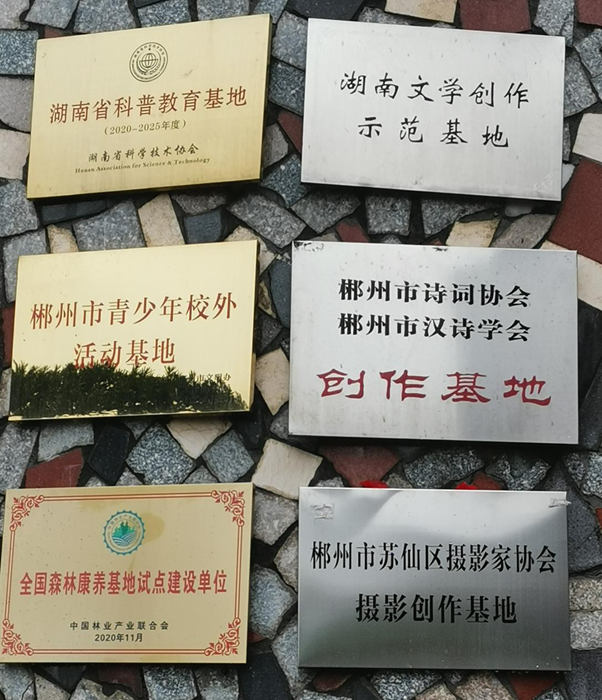 湖南省科普教育基地
(2020-2025年度)
湖南省科学技术协会
Hunan Association for Science & Technology
湖南文学创作
示范基地
郴州市青少年校外
活动基地
郴州市诗词协会
郴州市汉诗学会
创作基地
全国森林康养基地试点建设单位
中国林业产业联合会
2020年11月
郴州市苏仙区摄影家协会
摄影创作基地